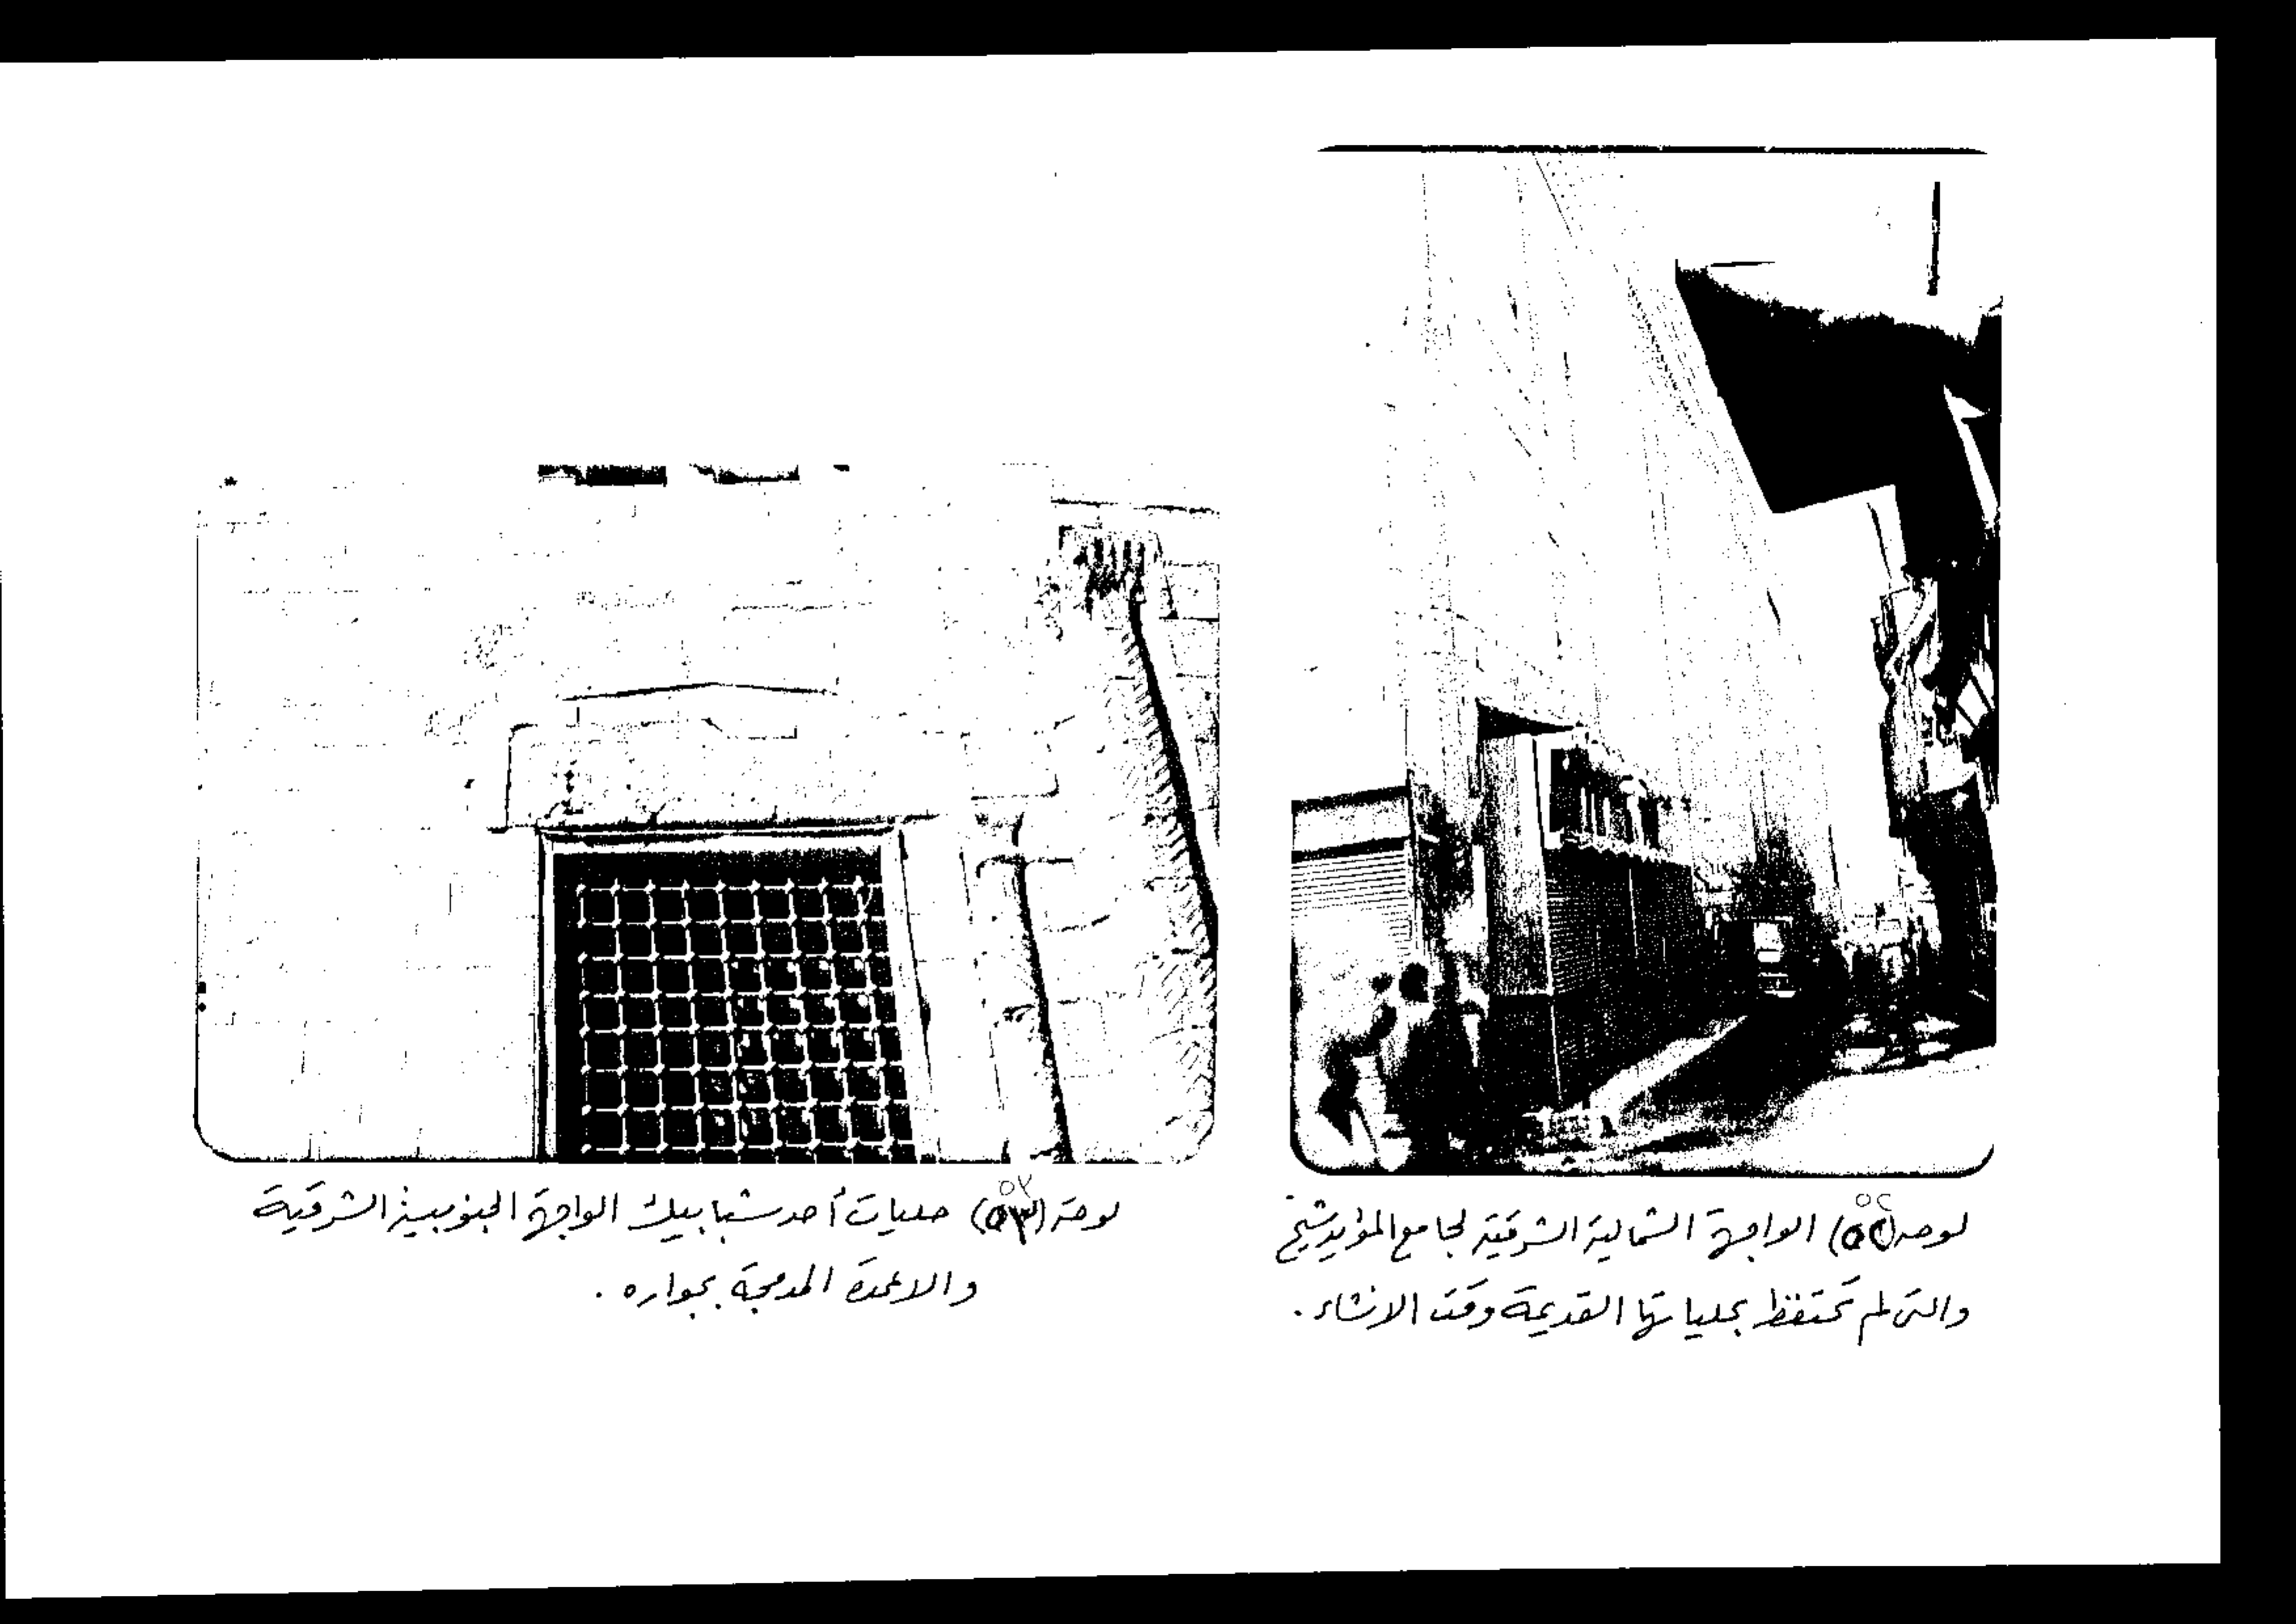 لوحه (٥٢) الواجهة الشمالية الشرقية لجامع المؤيد شيخ
والتى لم تحتفظ بحلياتها القديمة وقت الانشاء .
لوحة (٥٣) حليات أحد شبابيك الواجهة الجنوبية الشرقية
والاعمدة المدمجة بجواره .